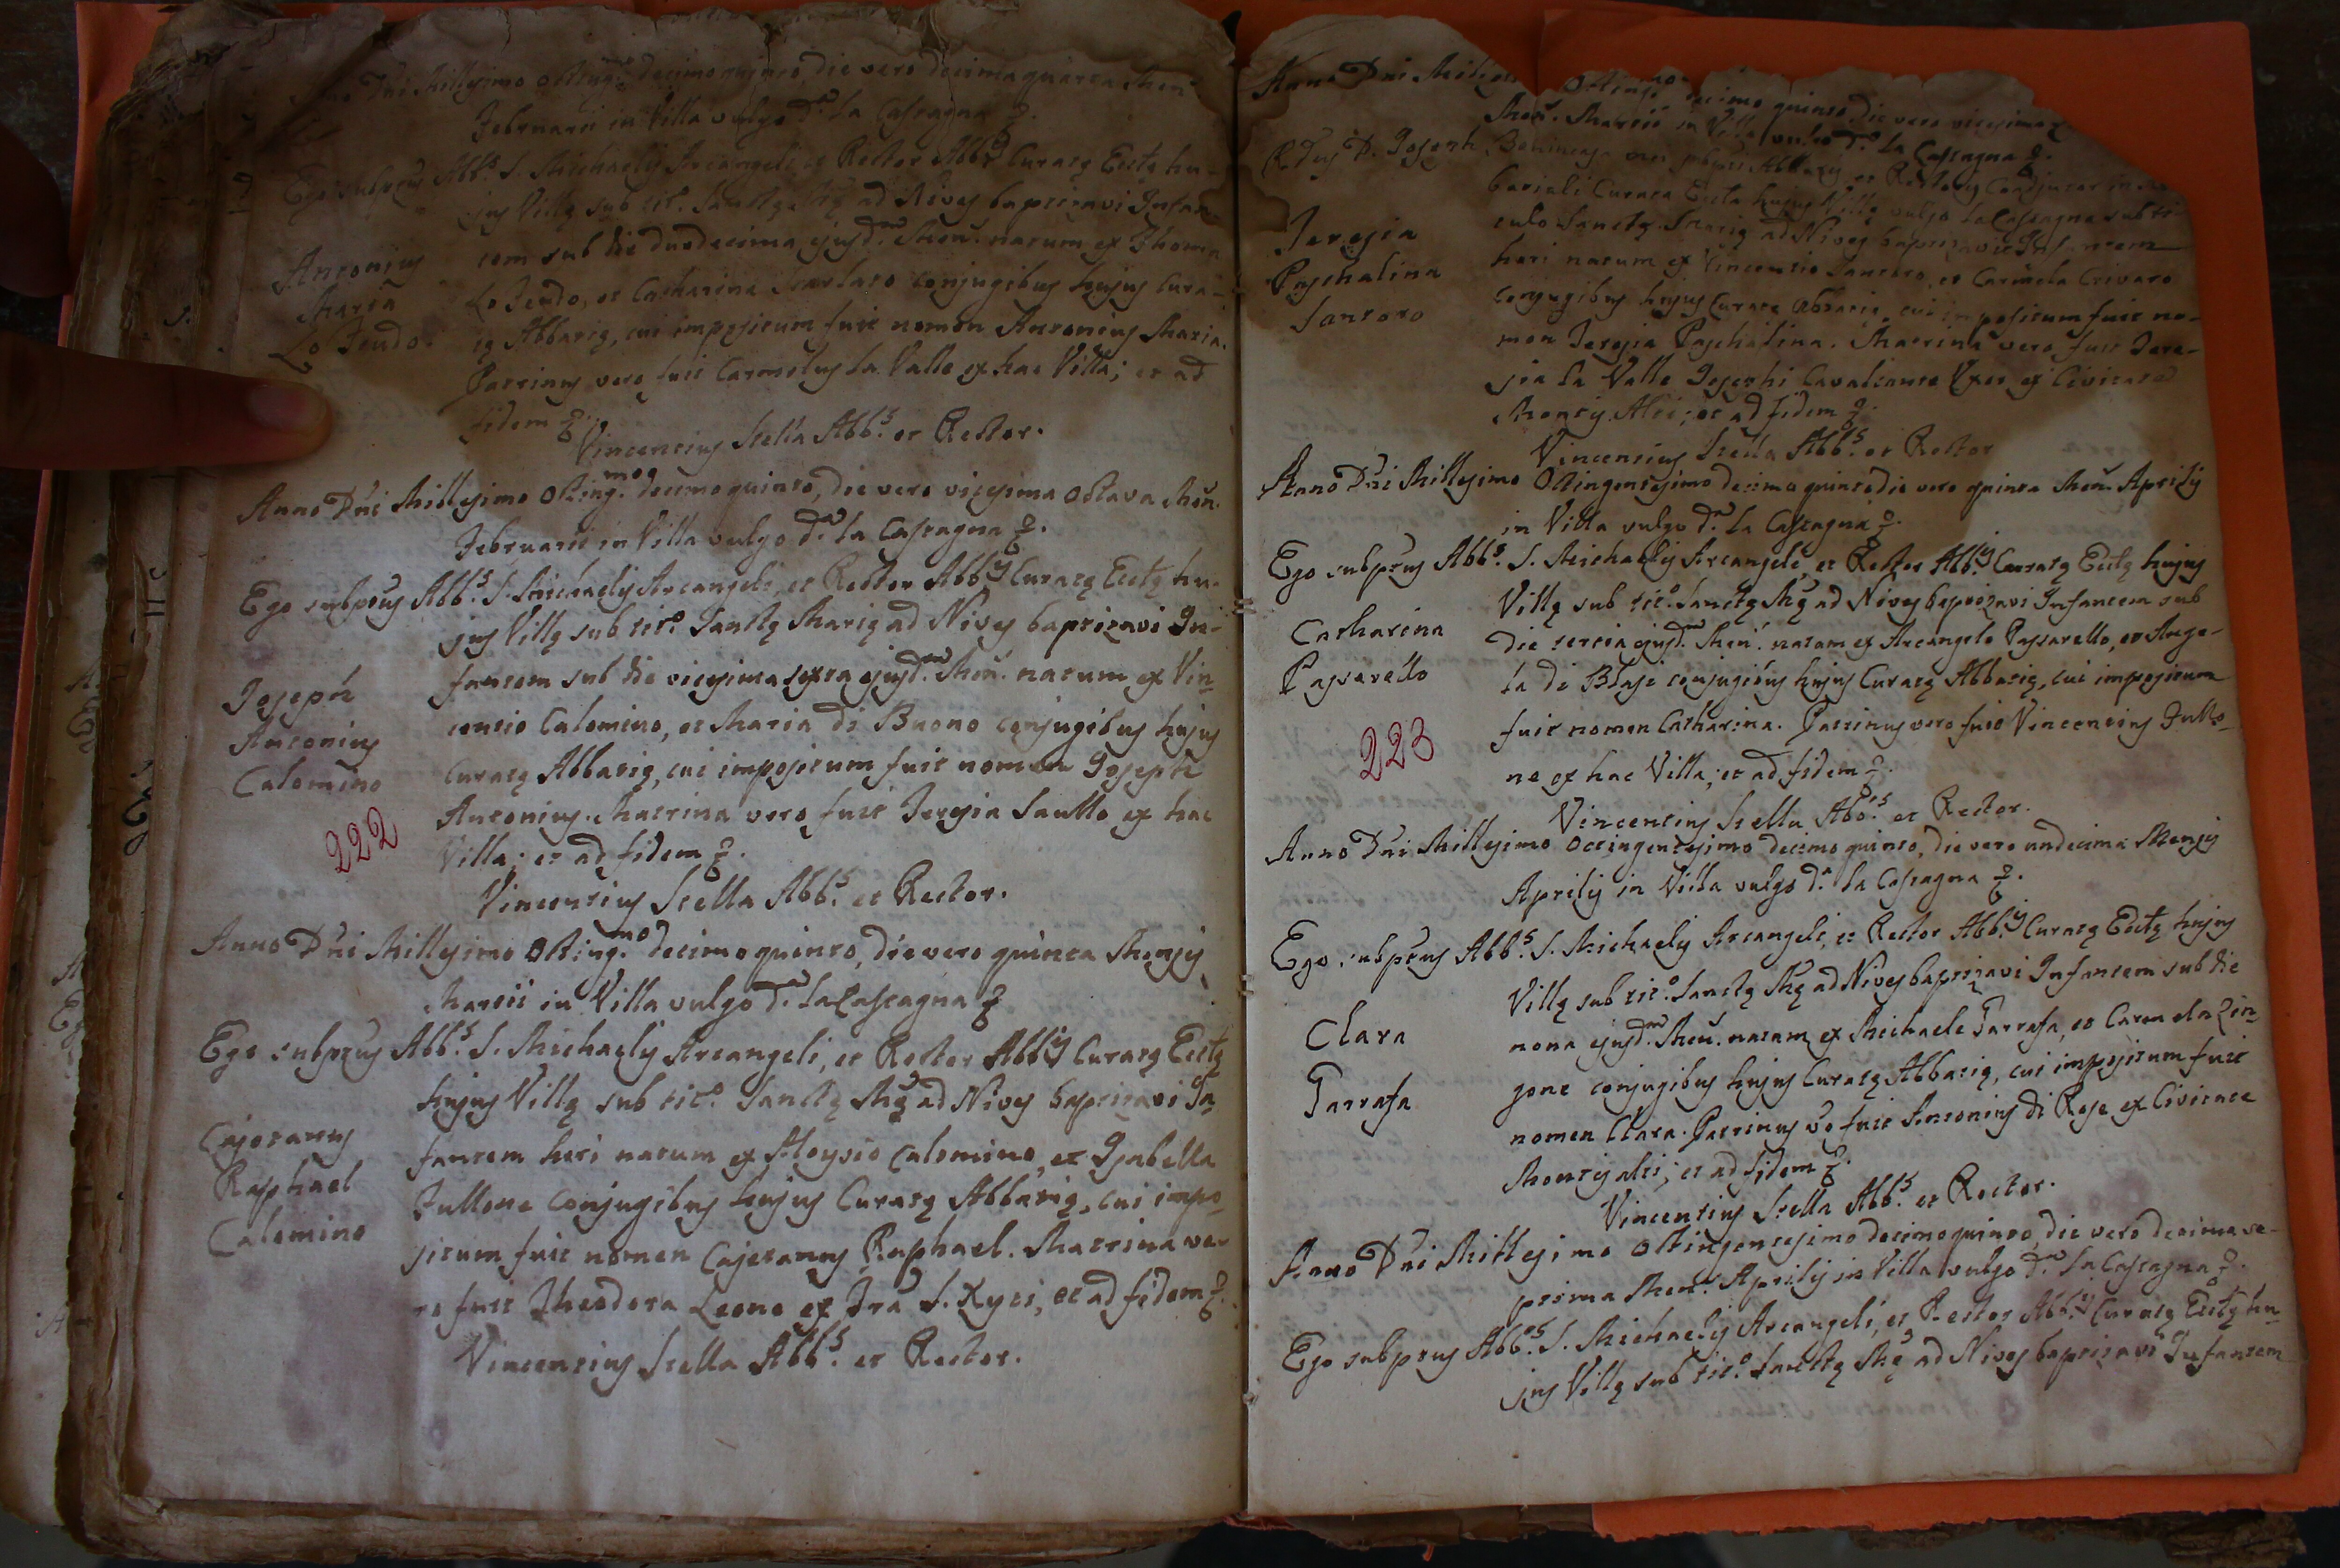 Anno Dni Millesimo Octing.mo decimo quinto, die vero decima quarta Men.
Februarii in Villa vulgo d.a la Castagna &.
Ego subptus Abb.s S. Michaelis Arcangeli, et Rector Abb.s Curatę Ecctę hu-
jus Villę sub tit.o Sanctę Mę ad Nives baptizavi Infan-
Antonius
Maria
Lo Feudo.
tem sub die duodecima ejusd.m Men. natum ex Thoma
Lo Feudo, et Catharina Scarlato conjugibus hujus Cura-
tę Abbatię, cui impositum fuit nomen Antonius Maria.
Patrinus vero fuit Carmelus La Valle ex hac Villa; et ad
fidem &.
Vincentius Stella Abb.s et Rector.
Anno Dni Millesimo Octing.mo decimo quinto, die vero vicesima octava Men.
Februarii in Villa vulgo d.a la Castagna &.
Ego subptus Abb.s S. Michaelis Arcangeli, et Rector Abb.s Curatę Ecctę hu-
jus Villę sub tit.o Sanctę Marię ad Nives baptizavi In-
Joseph
Antonius
Calomino
fantem sub die vicesima sexta ejusd.m Men. natum ex Vin-
centio Calomino, et Maria di Buono conjugibus hujus
Curatę Abbatię, cui impositum fuit nomen Joseph
Antonius. Matrina vero fuit Teresia Saullo ex hac
222
Villa; et ad fidem &.
Vincentius Stella Abb.s et Rector.
Anno Dni Millesimo Octing.mo decimo quinto, die vero quinta Mensis
Martii in Villa vulgo d.a la Castagna &
Ego subptus Abb.s S. Michaelis Arcangeli, et Rector Abb.s Curatę Ecctę
hujus Villę sub tit.o Sanctę Mę ad Nives baptizavi In-
Cajetanus
Raphael
Calomino
fantem heri natum ex Aloysio Calomino, et Isabella
Fullone conjugibus hujus Curatę Abbatię, cui impo-
situm fuit nomen Cajetanus Raphael. Matrina ve-
ro fuit Theodora Leone ex Tra S. Xysti, et ad fidem &.
Vincentius Stella Abb.s et Rector.
Anno Dni decimo quinto die vero vicesima
Men. Martii in Villa vulgo d.a la Castagna &.
R.dus D. Joseph Abbatis et Rectoris Coadjutor in
Curata Eccta hujus Villę vulgo la Castagna sub ti-
Teresia
Paschalina
Santoro
tulo Sanctę Marię ad Nives baptizavit Infantem
heri natum ex Vincentio Santoro, et Carmela Crivaro
conjugibus hujus Curatę Abbatię, cui impositum fuit no-
men Teresia Paschalina. Matrina vero fuit Tere-
sia La Valle Josephi Cavalcante Uxor ex Civitate
Montis Alti; et ad fidem &.
Vincentius Stella Abb.s et Rector
Anno Dni Millesimo Octingentesimo decimo quinto die vero quinta Men. Aprilis
in Villa vulgo d.a la Castagna &.
Ego subptus Abb.s S. Michaelis Arcangeli, et Rector Abb.s Curatę Ecctę hujus
Villę sub tit.o Sanctę Mę ad Nives baptizavi Infantem sub
Catharina
Passarello
die tertia ejusd.m Men. natam ex Arcangelo Passarello, et Ange-
la di Blasi conjugibus hujus Curatę Abbatię, cui impositum
fuit nomen Catharina. Patrinus vero fuit Vincentius Fullo-
223
ne ex hac Villa; et ad fidem &.
Vincentius Stella Abb.s et Rector.
Anno Dni Millesimo Octingentesimo decimo quinto, die vero undecima Mensis
Aprilis in Villa vulgo d.a la Castagna &.
Ego subptus Abb.s S. Michaelis Arcangeli, et Rector Abb.s Curatę Ecctę hujus
Villę sub tit.o Sanctę Mę ad Nives baptizavi Infantem sub die
Clara
Garrafa
nona ejusd.m Men. natam ex Michaele Garrafa, et Carmela Zin-
gone conjugibus hujus Curatę Abbatię, cui impositum fuit
nomen Clara. Patrinus vo fuit Antonius di Rose ex Civitate
Montis alti; et ad fidem &.
Vincentius Stella Abb.s et Rector.
Anno Dni Millesimo Octingentesimo decimo quinto, die vero decima se-
ptima Men. Aprilis in Villa vulgo d.a la Castagna &.
Ego subptus Abb.s S. Michaelis Arcangeli, et Rector Abb.s Curatę Ecctę hu-
jus Villę sub tit.o Sanctę Mę ad Nives baptizavi Infantem